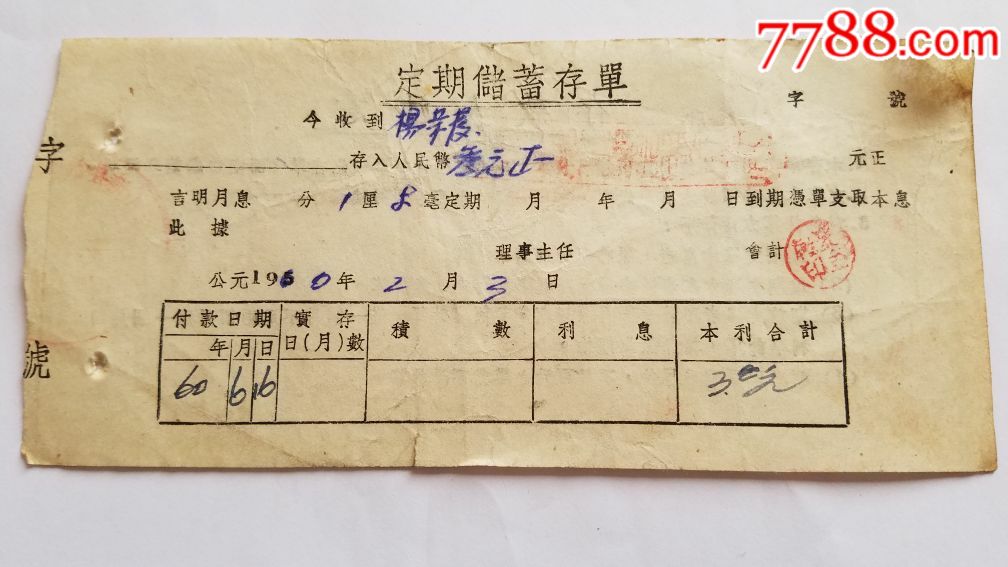 7788.com
定期儲蓄存單
字 號
今收到 楊
存入人民幣 叁元正 元正
言明月息 分 1 厘 8 毫定期 月 年 月 日到期憑單支取本息
此據
理事主任 會計
公元1960年 2 月 3 日
付款日期 實存日(月)數 積數 利息 本利合計
年 月 日
60 6 16 3.00元
字
號